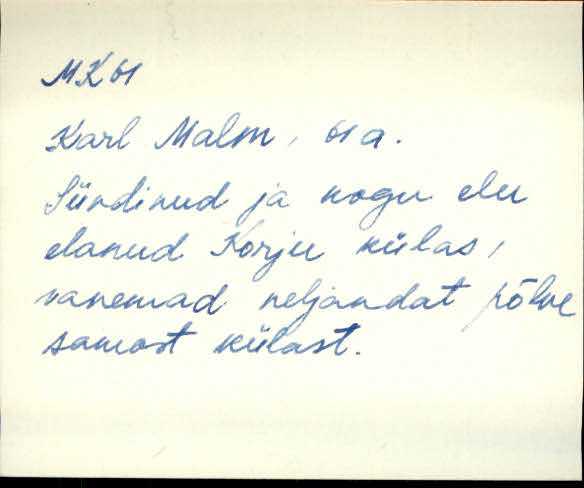 MK 61
Karl Malm, 61 a.
Sündinud ja kogu elu
elanud Korju külas,
vanemad neljandat põlve
samast külast.